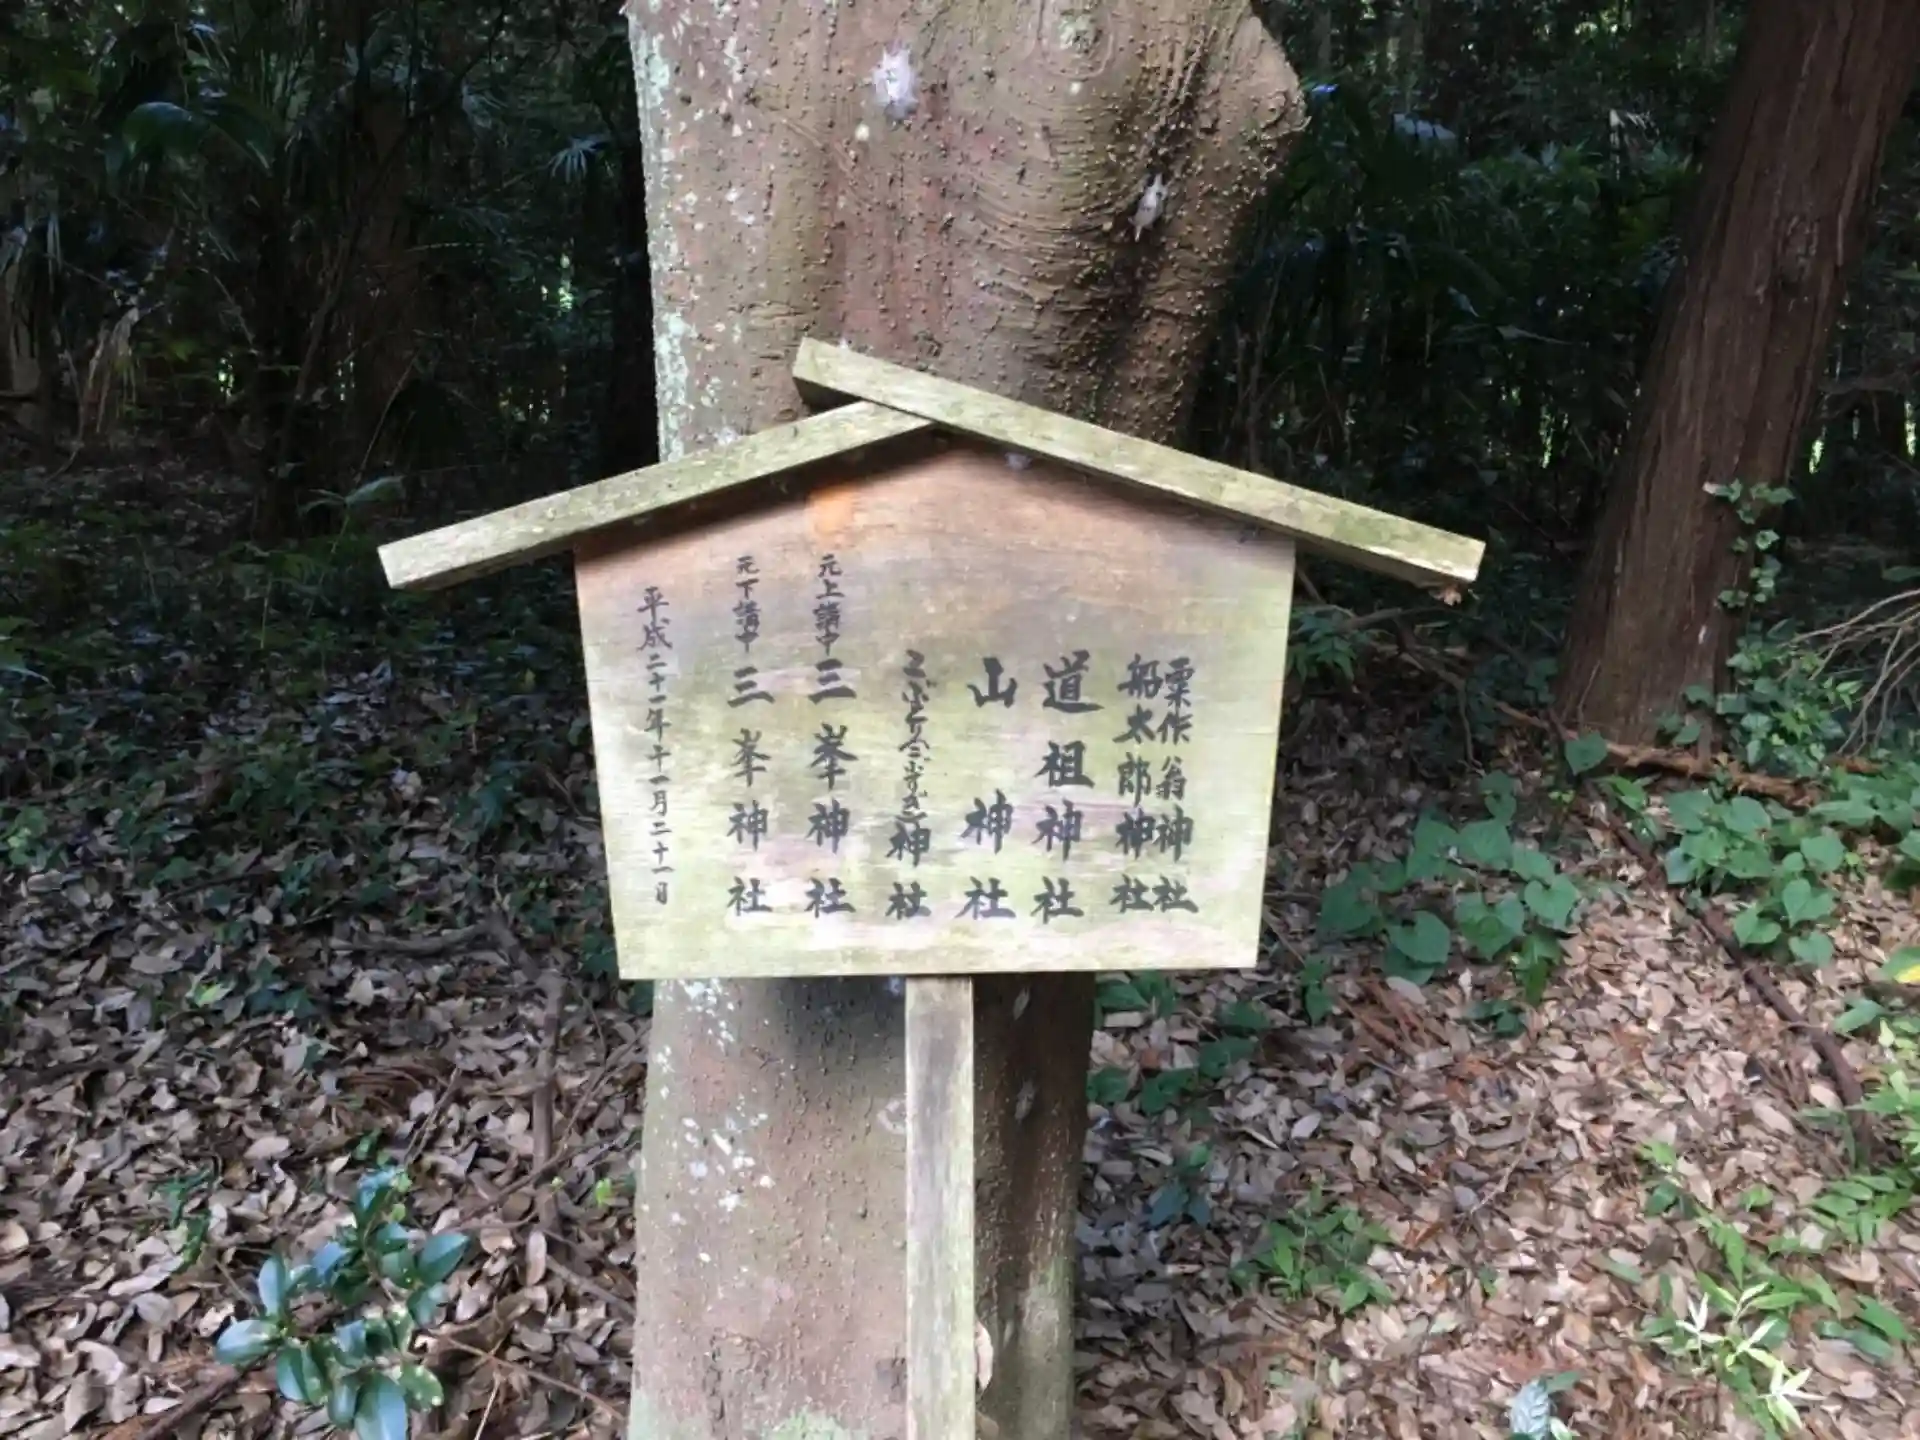 粟作翁神社
船太郎神社
道祖神社
山神社
こぶとり神社
元上講中三峯神社
元下講中三峯神社
平成二十一年十一月二十一日